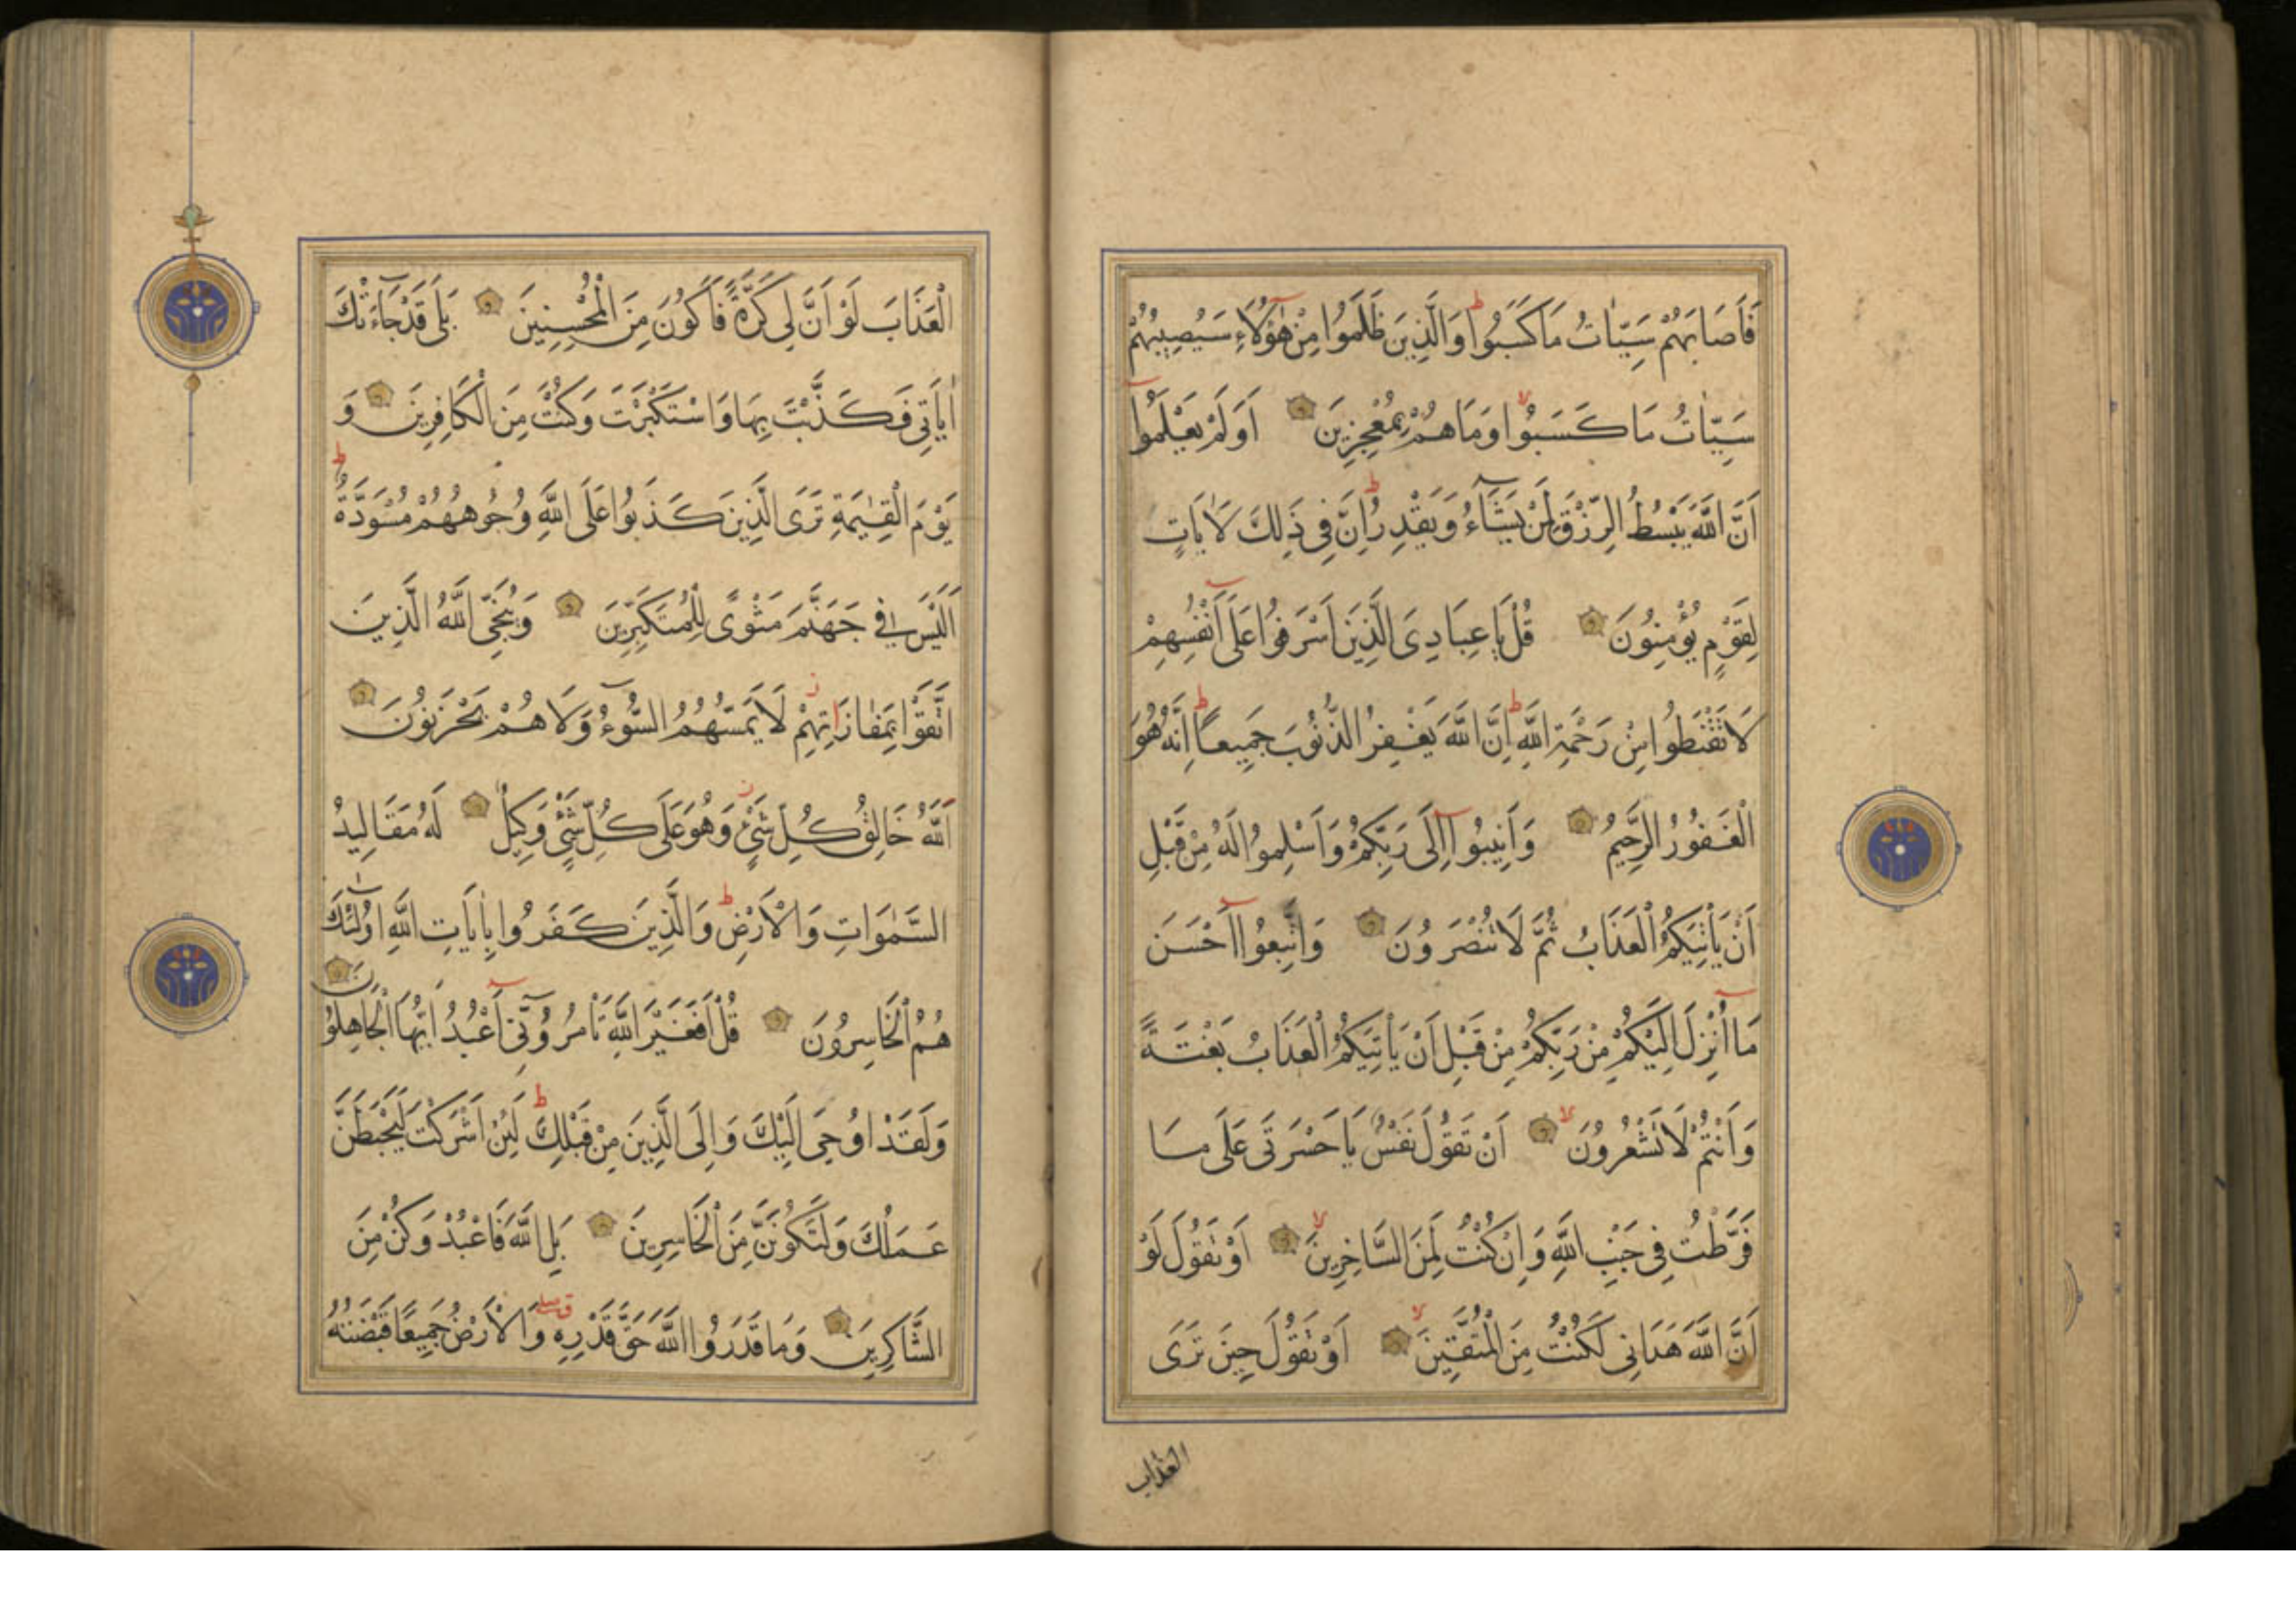 فَاَصَابَهُمْ سَيِّاٰتُ مَا كَسَبُوا ط وَالَّذِينَ ظَلَمُوا مِنْ هٰؤُلَاءِ سَيُصِيبُهُمْ
سَيِّاٰتُ مَا كَسَبُوا لا وَمَا هُمْ بِمُعْجِزِينَ اَوَلَمْ يَعْلَمُوا
اَنَّ اللَّهَ يَبْسُطُ الرِّزْقَ لِمَنْ يَشَاءُ وَيَقْدِرُ ط اِنَّ فِي ذَلِكَ لَاٰيَاتٍ
لِقَوْمٍ يُؤْمِنُونَ قُلْ يَا عِبَادِيَ الَّذِينَ اَسْرَفُوا عَلَى اَنْفُسِهِمْ
لَا تَقْنَطُوا مِنْ رَحْمَةِ اللَّهِ ط اِنَّ اللَّهَ يَغْفِرُ الذُّنُوبَ جَمِيعًا ط اِنَّهُ هُوَ
الْغَفُورُ الرَّحِيمُ وَاَنِيبُوا اِلَى رَبِّكُمْ وَاَسْلِمُوا لَهُ مِنْ قَبْلِ
اَنْ يَاْتِيَكُمُ الْعَذَابُ ثُمَّ لَا تُنْصَرُونَ وَاتَّبِعُوا اَحْسَنَ
مَا اُنْزِلَ اِلَيْكُمْ مِنْ رَبِّكُمْ مِنْ قَبْلِ اَنْ يَاْتِيَكُمُ الْعَذَابُ بَغْتَةً
وَاَنْتُمْ لَا تَشْعُرُونَ لا اَنْ تَقُولَ نَفْسٌ يَا حَسْرَتَى عَلَى مَا
فَرَّطْتُ فِي جَنْبِ اللَّهِ وَاِنْ كُنْتُ لَمِنَ السَّاخِرِينَ لا اَوْ تَقُولَ لَوْ
اَنَّ اللَّهَ هَدَانِي لَكُنْتُ مِنَ الْمُتَّقِينَ لا اَوْ تَقُولَ حِينَ تَرَى
العذاب
الْعَذَابَ لَوْ اَنَّ لِي كَرَّةً فَاَكُونَ مِنَ الْمُحْسِنِينَ بَلَى قَدْ جَاءَتْكَ
اٰيَاتِي فَكَذَّبْتَ بِهَا وَاسْتَكْبَرْتَ وَكُنْتَ مِنَ الْكَافِرِينَ وَ
يَوْمَ الْقِيٰمَةِ تَرَى الَّذِينَ كَذَبُوا عَلَى اللَّهِ وُجُوهُهُمْ مُسْوَدَّةٌ ط
اَلَيْسَ فِي جَهَنَّمَ مَثْوًى لِلْمُتَكَبِّرِينَ وَيُنَجِّي اللَّهُ الَّذِينَ
اتَّقَوْا بِمَفَازَاتِهِمْ ز لَا يَمَسُّهُمُ السُّوءُ وَلَا هُمْ يَحْزَنُونَ
اَللَّهُ خَالِقُ كُلِّ شَيْءٍ ز وَهُوَ عَلَى كُلِّ شَيْءٍ وَكِيلٌ لَهُ مَقَالِيدُ
السَّمٰوَاتِ وَالْاَرْضِ ط وَالَّذِينَ كَفَرُوا بِاٰيَاتِ اللَّهِ اُولٰئِكَ
هُمُ الْخَاسِرُونَ قُلْ اَفَغَيْرَ اللَّهِ تَاْمُرُونِّي اَعْبُدُ اَيُّهَا الْجَاهِلُونَ
وَلَقَدْ اُوحِيَ اِلَيْكَ وَاِلَى الَّذِينَ مِنْ قَبْلِكَ ط لَئِنْ اَشْرَكْتَ لَيَحْبَطَنَّ
عَمَلُكَ وَلَتَكُونَنَّ مِنَ الْخَاسِرِينَ بَلِ اللَّهَ فَاعْبُدْ وَكُنْ مِنَ
الشَّاكِرِينَ وَمَا قَدَرُوا اللَّهَ حَقَّ قَدْرِهِ وَالْاَرْضُ جَمِيعًا قَبْضَتُهُ